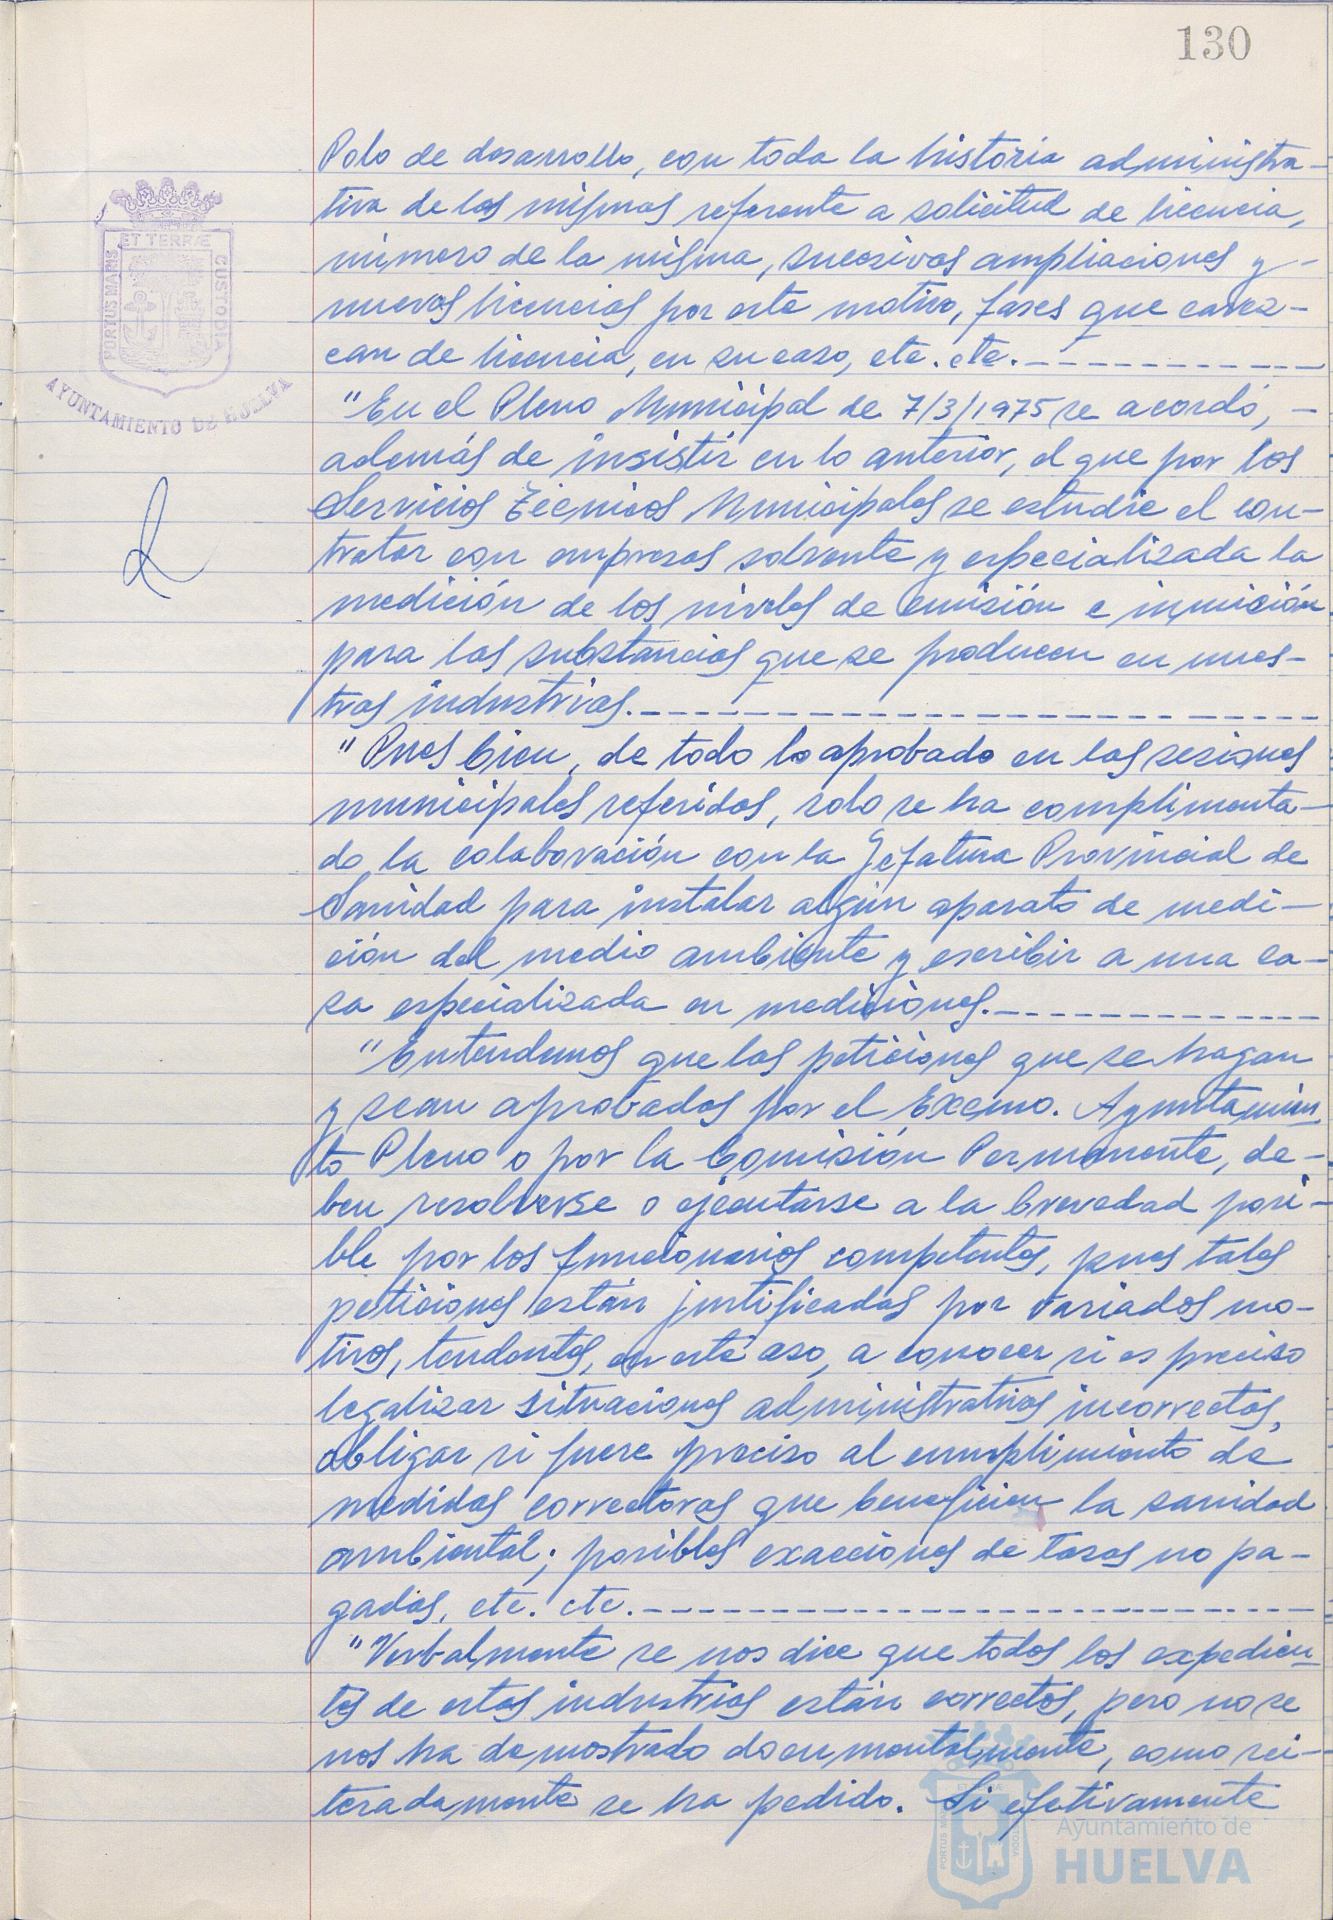 130
Polo de desarrollo, con toda la historia administra-
tiva de las mismas referente a solicitud de licencia,
número de la misma, sucesivas ampliaciones y -
nuevas licencias por este motivo, fases que carez-
can de licencia, en su caso, etc. etc.
"En el Pleno Municipal de 7/3/1975 se acordó, -
además de insistir en lo anterior, el que por los
Servicios Técnicos Municipales se estudie el con-
tratar con empresas solvente y especializada la
medición de los niveles de emisión e inmisión
para las substancias que se producen en nues-
tras industrias.
"Pues bien, de todo lo aprobado en las sesiones
municipales referidas, solo se ha cumplimenta-
do la colaboración con la Jefatura Provincial de
Sanidad para instalar algún aparato de medi-
ción del medio ambiente y escribir a una ca-
sa especializada en mediciones.
"Entendemos que las peticiones que se hagan
y sean aprobadas por el Excmo. Ayuntamien
to Pleno o por la Comisión Permanente, de-
ben resolverse o ejecutarse a la brevedad posi-
ble por los funcionarios competentes, pues tales
peticiones están justificadas por variados mo-
tivos, tendentes, en este aso, a conocer si es preciso
legalizar situaciones administrativas incorrectas,
obligar si fuere preciso al cumplimiento de
medidas correctoras que beneficien la sanidad
ambiental; posibles exacciones de tasas no pa-
gadas, etc. etc.
"Verbalmente se nos dice que todos los expedien
tes de estas industrias están correctos, pero no se
nos ha demostrado documentalmente, como rei-
teradamente se ha pedido. Si efetivamente
ET TERRÆ
PORTUS MARIS
CUSTODIA
AYUNTAMIENTO DE HUELVA
Ayuntamiento de
HUELVA